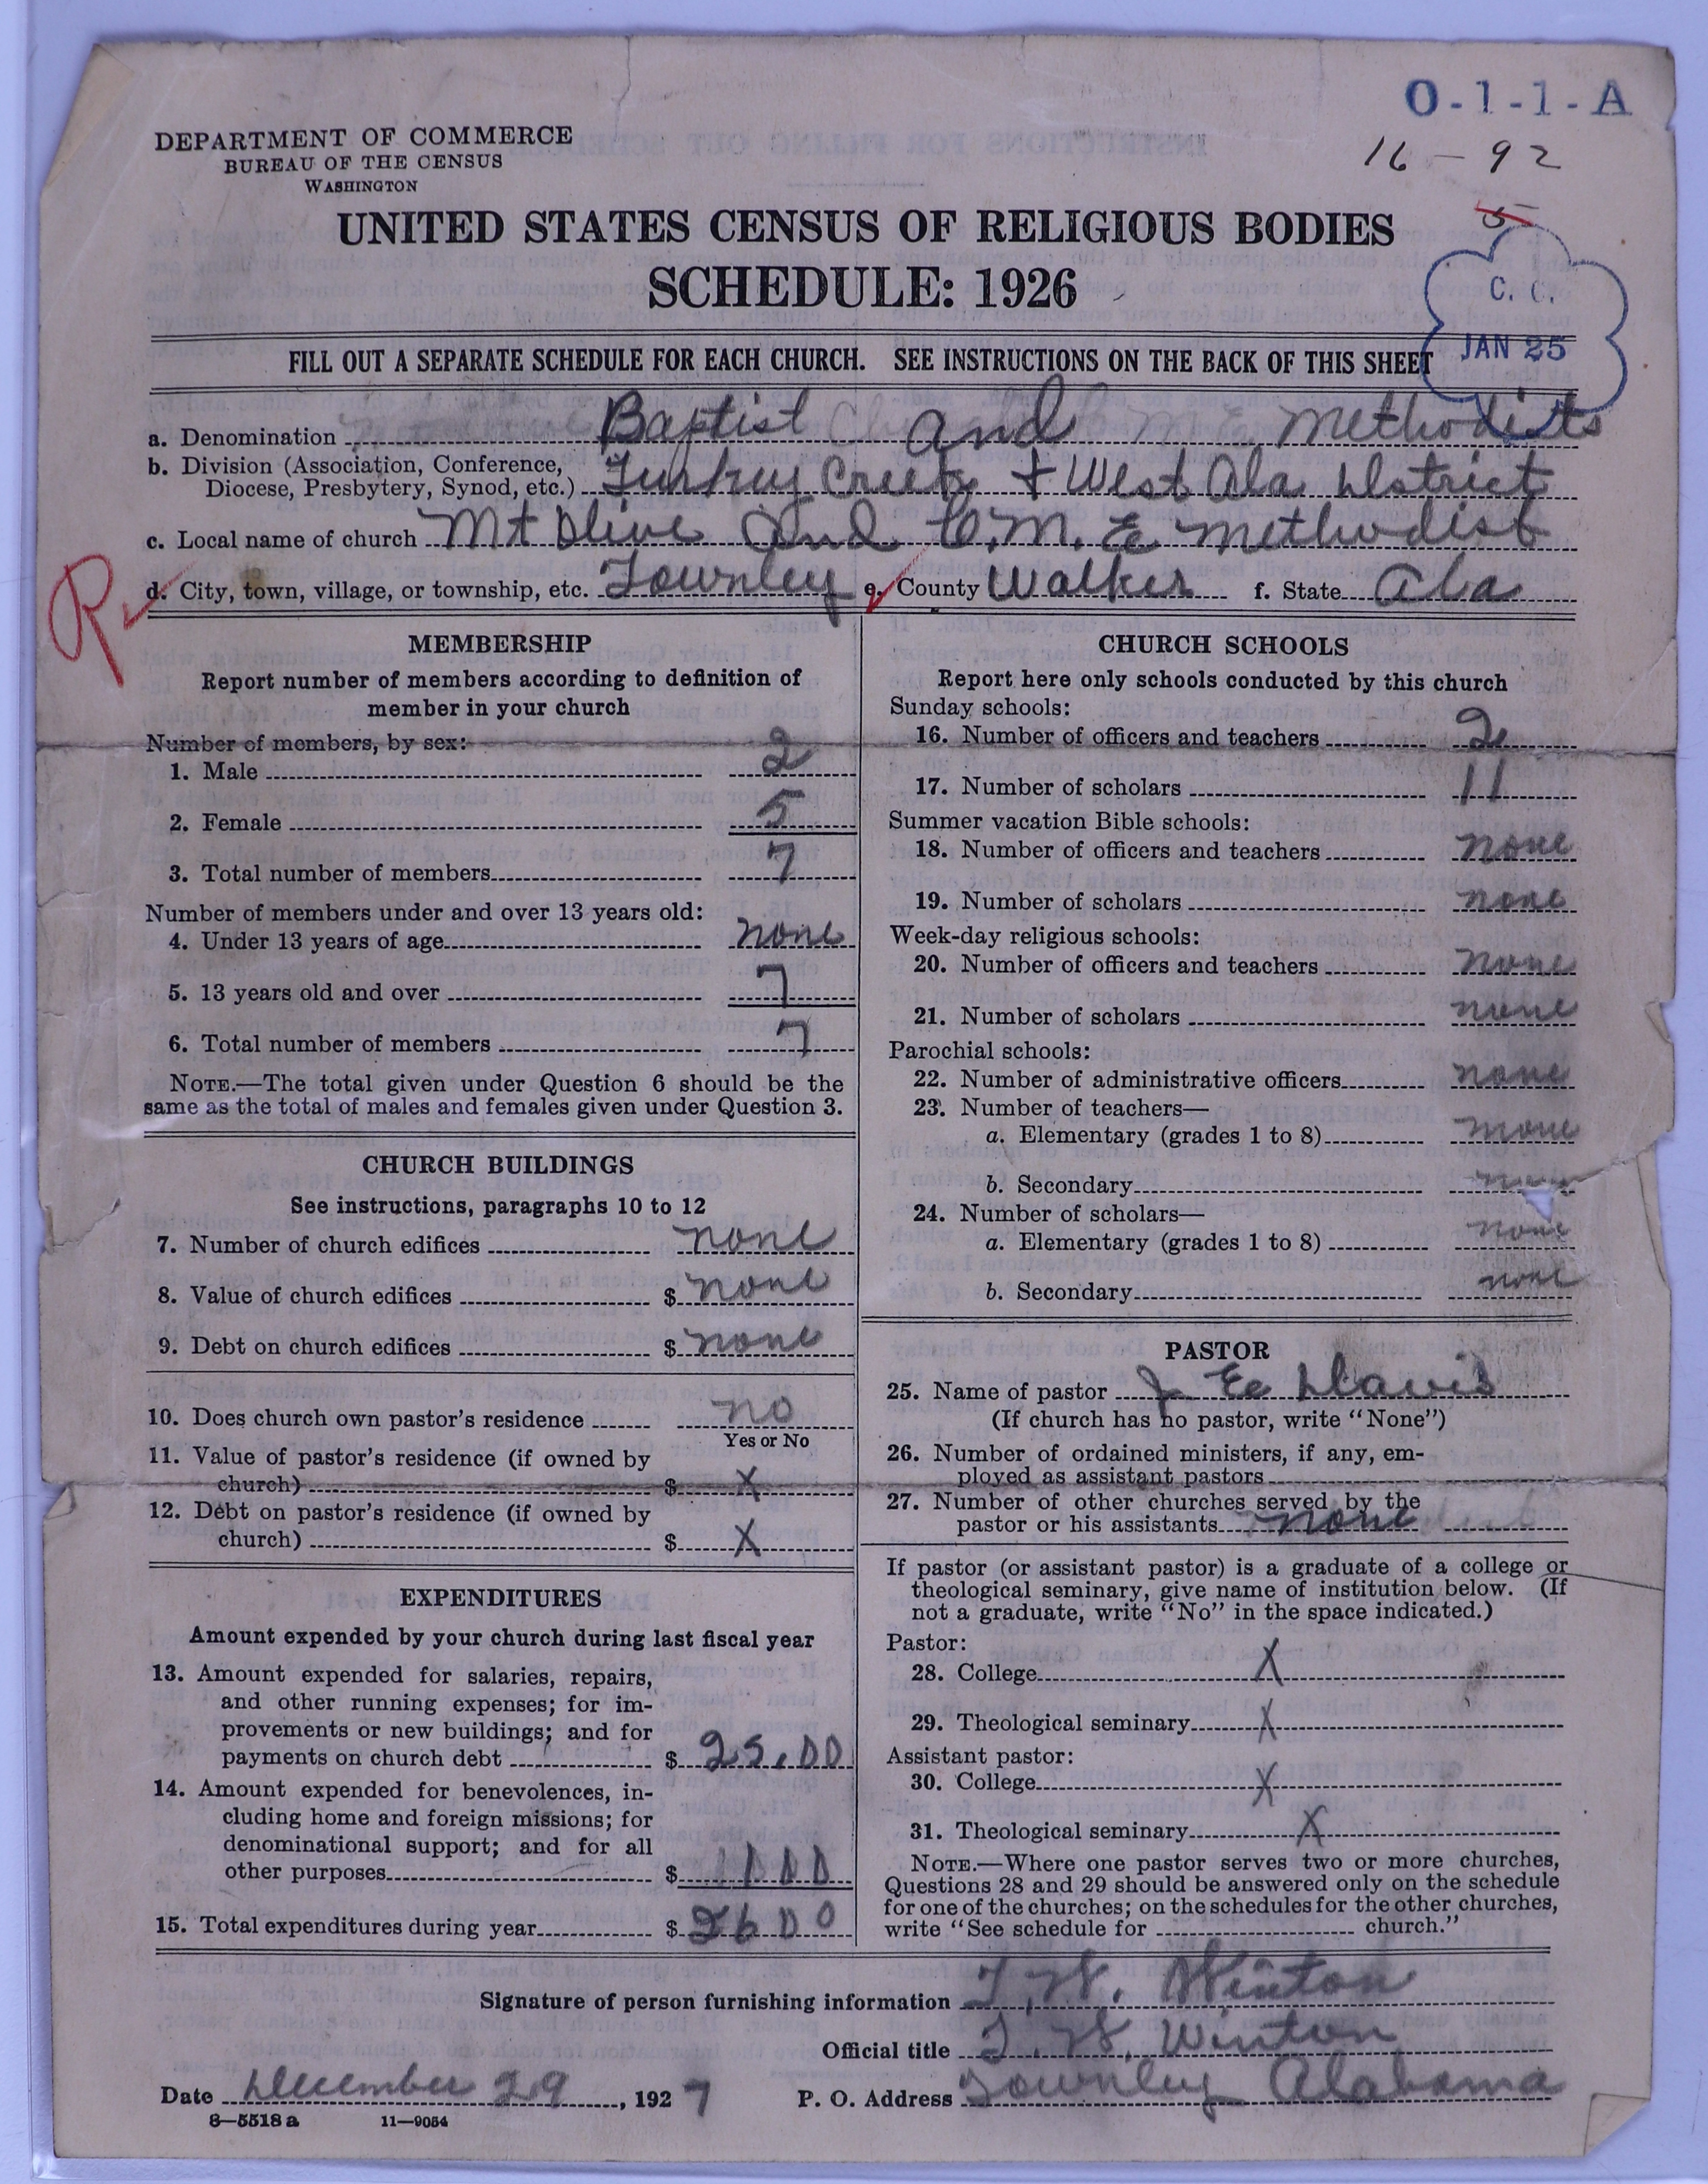 O-1-1-A
16-92
5
DEPARTMENT OF COMMERCE
BUREAU OF THE CENSUS
WASHINGTON
UNITED STATES CENSUS OF RELIGIOUS BODIES
SCHEDULE: 1926
C. C.
JAN 25
FILL OUT A SEPARATE SCHEDULE FOR EACH CHURCH. SEE INSTRUCTIONS ON THE BACK OF THIS SHEET
a. Denomination Baptist and Methodists
b. Division (Association, Conference,
Diocese, Presbytery, Synod, etc.) Turkey Creek + West Ala District
c. Local name of church Mt Olive and C. M. E Methodist
R
d. City, town, village, or township, etc. Townley e. County Walker f. State Ala
MEMBERSHIP
Report number of members according to definition of
member in your church
Number of members, by sex:
1. Male 2
2. Female 5
3. Total number of members 7
Number of members under and over 13 years old:
4. Under 13 years of age none
5. 13 years old and over 7
6. Total number of members 7
NOTE.—The total given under Question 6 should be the
same as the total of males and females given under Question 3.
CHURCH BUILDINGS
See instructions, paragraphs 10 to 12
7. Number of church edifices none
8. Value of church edifices $ none
9. Debt on church edifices $ none
10. Does church own pastor's residence no
Yes or No
11. Value of pastor's residence (if owned by
church) $ X
12. Debt on pastor's residence (if owned by
church) $ X
EXPENDITURES
Amount expended by your church during last fiscal year
13. Amount expended for salaries, repairs,
and other running expenses; for im-
provements or new buildings; and for
payments on church debt $ 25.00
14. Amount expended for benevolences, in-
cluding home and foreign missions; for
denominational support; and for all
other purposes $ 1 00
15. Total expenditures during year $ 26 00
CHURCH SCHOOLS
Report here only schools conducted by this church
Sunday schools:
16. Number of officers and teachers 2
17. Number of scholars 11
Summer vacation Bible schools:
18. Number of officers and teachers none
19. Number of scholars none
Week-day religious schools:
20. Number of officers and teachers none
21. Number of scholars none
Parochial schools:
22. Number of administrative officers none
23. Number of teachers—
a. Elementary (grades 1 to 8) none
b. Secondary none
24. Number of scholars—
a. Elementary (grades 1 to 8) none
b. Secondary none
PASTOR
25. Name of pastor J. E. Davis
(If church has no pastor, write "None")
26. Number of ordained ministers, if any, em-
ployed as assistant pastors
27. Number of other churches served by the
pastor or his assistants none
If pastor (or assistant pastor) is a graduate of a college or
theological seminary, give name of institution below. (If
not a graduate, write "No" in the space indicated.)
Pastor:
28. College X
29. Theological seminary X
Assistant pastor:
30. College X
31. Theological seminary X
NOTE.—Where one pastor serves two or more churches,
Questions 28 and 29 should be answered only on the schedule
for one of the churches; on the schedules for the other churches,
write "See schedule for church."
Signature of person furnishing information T. W. Winton
Official title T. W. Winton
Date December 29, 1927 P. O. Address Townley Alabama
8—5518 a 11—9054